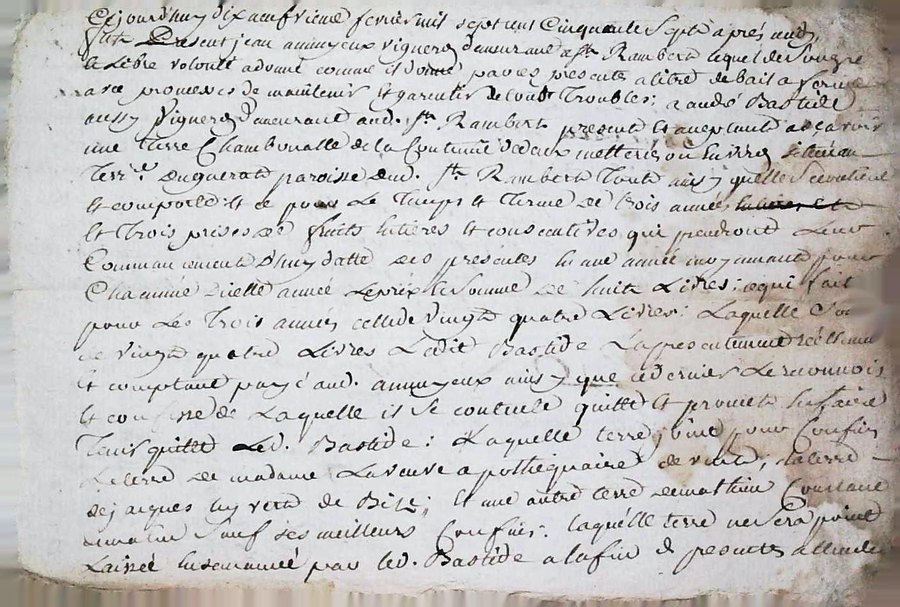 Cejourd'huy dix neufvieme fevrier mil sept cent Cinquante Sept apres midy
fut present jean amuyeux vigneron demeurant a St. Rambert lequel de Son gré
et Libre volonté a donné comme il donne par ces presentes a titre de bail a ferme
avec promesses de maintenir et garentir de tout Troubles; a andré Bastide
aussy Vigneron demeurant aud. St. Rambert present et acceptant a Sçavoir
une Terre Chambonalle de la Contenue de deux metterés ou Environ Scituée au
Terr.re Duguerat paroisse dud. St. Rambert Tout ainsy quelle Se contient
et comporte et ce pour Le Temps et Terme de trois années
et Trois prises de fruits Entieres et consecutives qui prendront Leur
Commancement D'huy datte des presentes En une année moyennant pour
Chacunne d'icelle année Le prix et Somme de huit Livres; ce qui fait
pour Les Trois années celle de Vingt quatre Livres: Laquelle So
de vingt quatre Livres Ledit Bastide La presentement réellem
et comptant payé aud. amuyeux ainsy que ce dernier Le reconnois
et confesse de Laquelle il Se contente quitte et promet En faire
Tenir quitte Led. Bastide: Laquelle terre joint pour Confins
La terre de madame La veuve apothiquaire de vent; La terre
de jacques de Bise; Et une autre terre de mathieu Coustant
de matin Sauf Ses meilleurs Confins: laquelle terre ne Sera point
Laissé Ensemancé par led. Bastide a la fin des presentes attendu